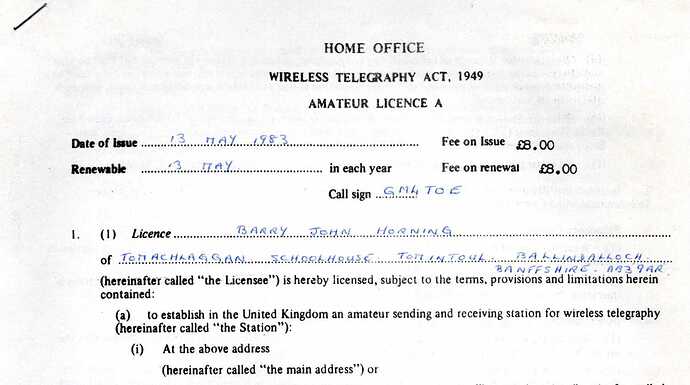 HOME OFFICE
WIRELESS TELEGRAPHY ACT, 1949
AMATEUR LICENCE A
Date of Issue 13 MAY 1983 Fee on Issue £8.00
Renewable 13 MAY in each year Fee on renewal £8.00
Call sign GM4TOE
1. (1) Licence BARRY JOHN HORNING
of TOMACHLAGGAN SCHOOLHOUSE TOMINTOUL BALLINDALLOCH
BANFFSHIRE. AB3 9AR
(hereinafter called "the Licensee") is hereby licensed, subject to the terms, provisions and limitations herein
contained:
(a) to establish in the United Kingdom an amateur sending and receiving station for wireless telegraphy
(hereinafter called "the Station"):
(i) At the above address
(hereinafter called "the main address") or